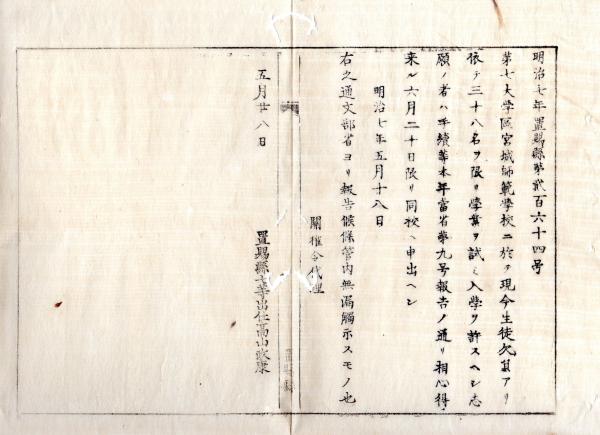 明治七年置賜縣第貳百六十四号
第七大学區宮城師範學校ニ於テ現今生徒欠員アリ
依テ三十八名ヲ限リ學業ヲ試ミ入學ヲ許スヘシ志
願ノ者ハ手續等本年當省第九号報告ノ通リ相心得
来ル六月二十日限リ同校ヘ申出ヘシ
明治七年五月十八日
右之通文部省ヨリ報告候條管内無漏觸示スモノ也
關權令代理
五月廿八日
置賜縣 等出仕高山政康
置賜縣